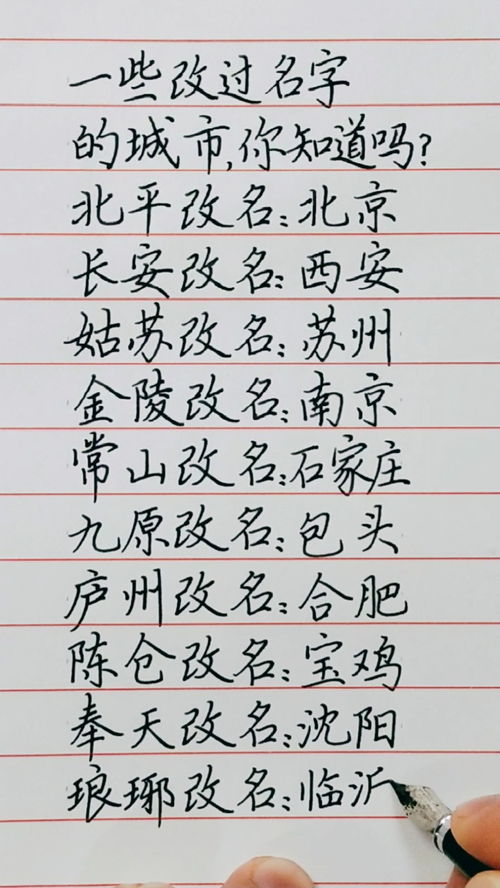 一些改过名字
的城市,你知道吗?
北平改名:北京
长安改名:西安
姑苏改名:苏州
金陵改名:南京
常山改名:石家庄
九原改名:包头
庐州改名:合肥
陈仓改名:宝鸡
奉天改名:沈阳
琅琊改名:临沂